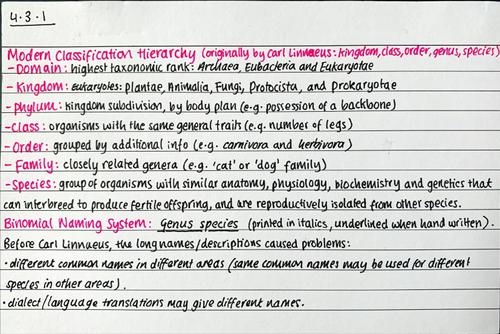 4.3.1
Modern Classification Hierarchy (originally by Carl Linnaeus: kingdom, class, order, genus, species)
- Domain: highest taxonomic rank: Archaea, Eubacteria and Eukaryotae
- Kingdom: eukaryotes: plantae, Animalia, Fungi, Protoctista, and prokaryotae
- Phylum: kingdom subdivision, by body plan (e.g. possession of a backbone)
- Class: organisms with the same general traits (e.g. number of legs)
- Order: grouped by additional info (e.g. carnivora and herbivora)
- Family: closely related genera (e.g. 'cat' or 'dog' family)
- Species: group of organisms with similar anatomy, physiology, biochemistry and genetics that
can interbreed to produce fertile offspring, and are reproductively isolated from other species.
Binomial Naming System: Genus species (printed in italics, underlined when hand written).
Before Carl Linnaeus, the long names/descriptions caused problems:
• different common names in different areas (same common names may be used for different
species in other areas).
• dialect/language translations may give different names.